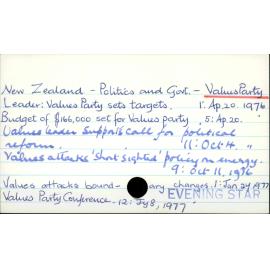 New Zealand - Politics and Govt. - Values Party
Leader: Values Party sets targets. 1: Ap. 20. 1976
Budget of $166,000 set for Values party, 5: Ap. 20.
Values leader supports call for political
reform. 11: Oct 4. "
Values attacks 'short sighted' policy on energy.
9: Oct 11, 1976
Values attacks bound- ary changes. 1: Jan 24 1977
Values Party Conference. 12: Jy 8, 1977
EVENING STAR